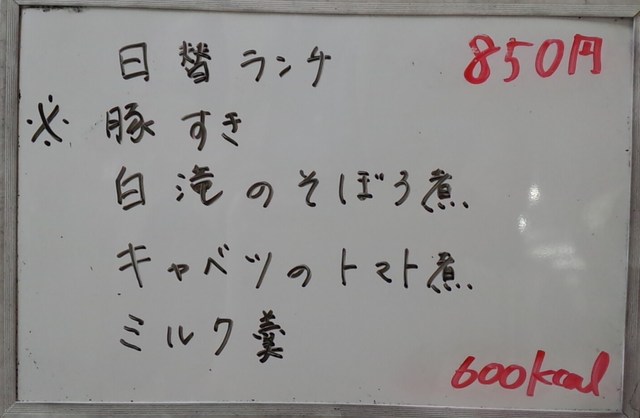 日替ランチ 850円
※ 豚すき
白滝のそぼろ煮
キャベツのトマト煮
ミルク羹
600kcal